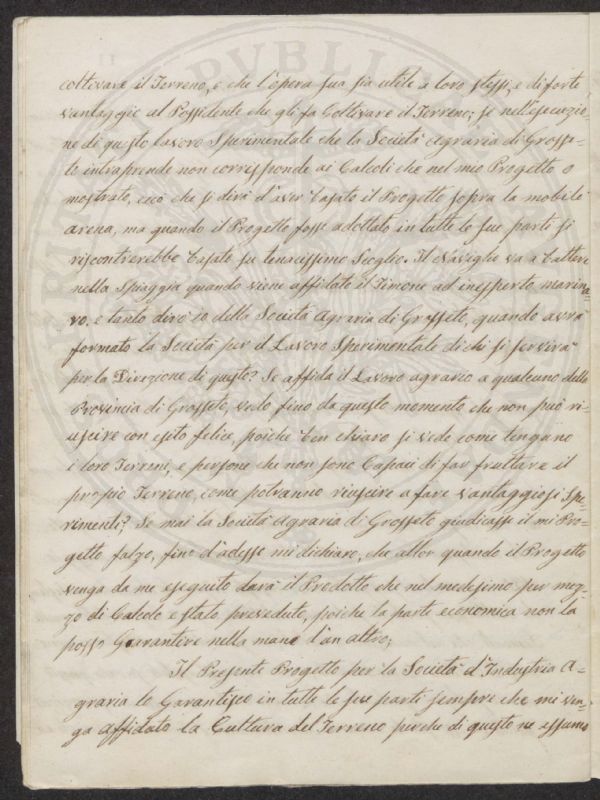 coltivare il Terreno, e che l'opera sua sia utile a loro stessi, e di forte
vantaggio al Possidente che gli fa Coltivare il Terreno; se nell'esecuzio-
ne di questo lavoro Sperimentale che la Società Agraria di Grosse-
to intraprende non corrisponde ai Calcoli che nel mio Progetto o
mostrato, ecco che si dirà d'aver basato il Progetto sopra la mobile
arena, ma quando il Progetto fosse adottato in tutte le sue parti si
riscontrerebbe basato su tenacissimo Scoglio. Il Naviglio va a battere
nella Spiaggia quando viene affidato il Timone ad inesperto marina-
ro, e tanto dirò io della Società Agraria di Grosseto, quando avrà
formato la Società per il Lavoro Sperimentale di chi si servirà
per la Direzione di questo? Se affida il Lavoro agrario a qualcuno della
Provincia di Grosseto, vedo fino da questo momento che non può ri-
uscire con esito felice, poiche ben chiaro si vede come tengano
i loro Terreni, e persone che non sono Capaci di far fruttare il
proprio Terreno, come potranno riuscire a fare vantaggiosi Spe-
rimenti? Se mai la Società Agraria di Grosseto giudicassi il mi Pro-
getto falzo, fino d'adesso mi dichiaro, che allor quando il Progetto
venga da me eseguito darà il Prodotto che nel medesimo per mez-
zo di Calcolo è stato preveduto, poiche la parte economica non la
posso Garantire nella mano d'un altro;
Il Presente Progetto per la Società d'Industria A-
graria lo Garantisco in tutte le sue parti sempre che mi ven-
ga affidato la Cultura del Terreno perche di questo ne assumo